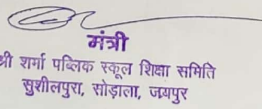 मंत्री
श्री शर्मा पब्लिक स्कूल शिक्षा समिति
सुशीलपुरा, सोड़ाला, जयपुर